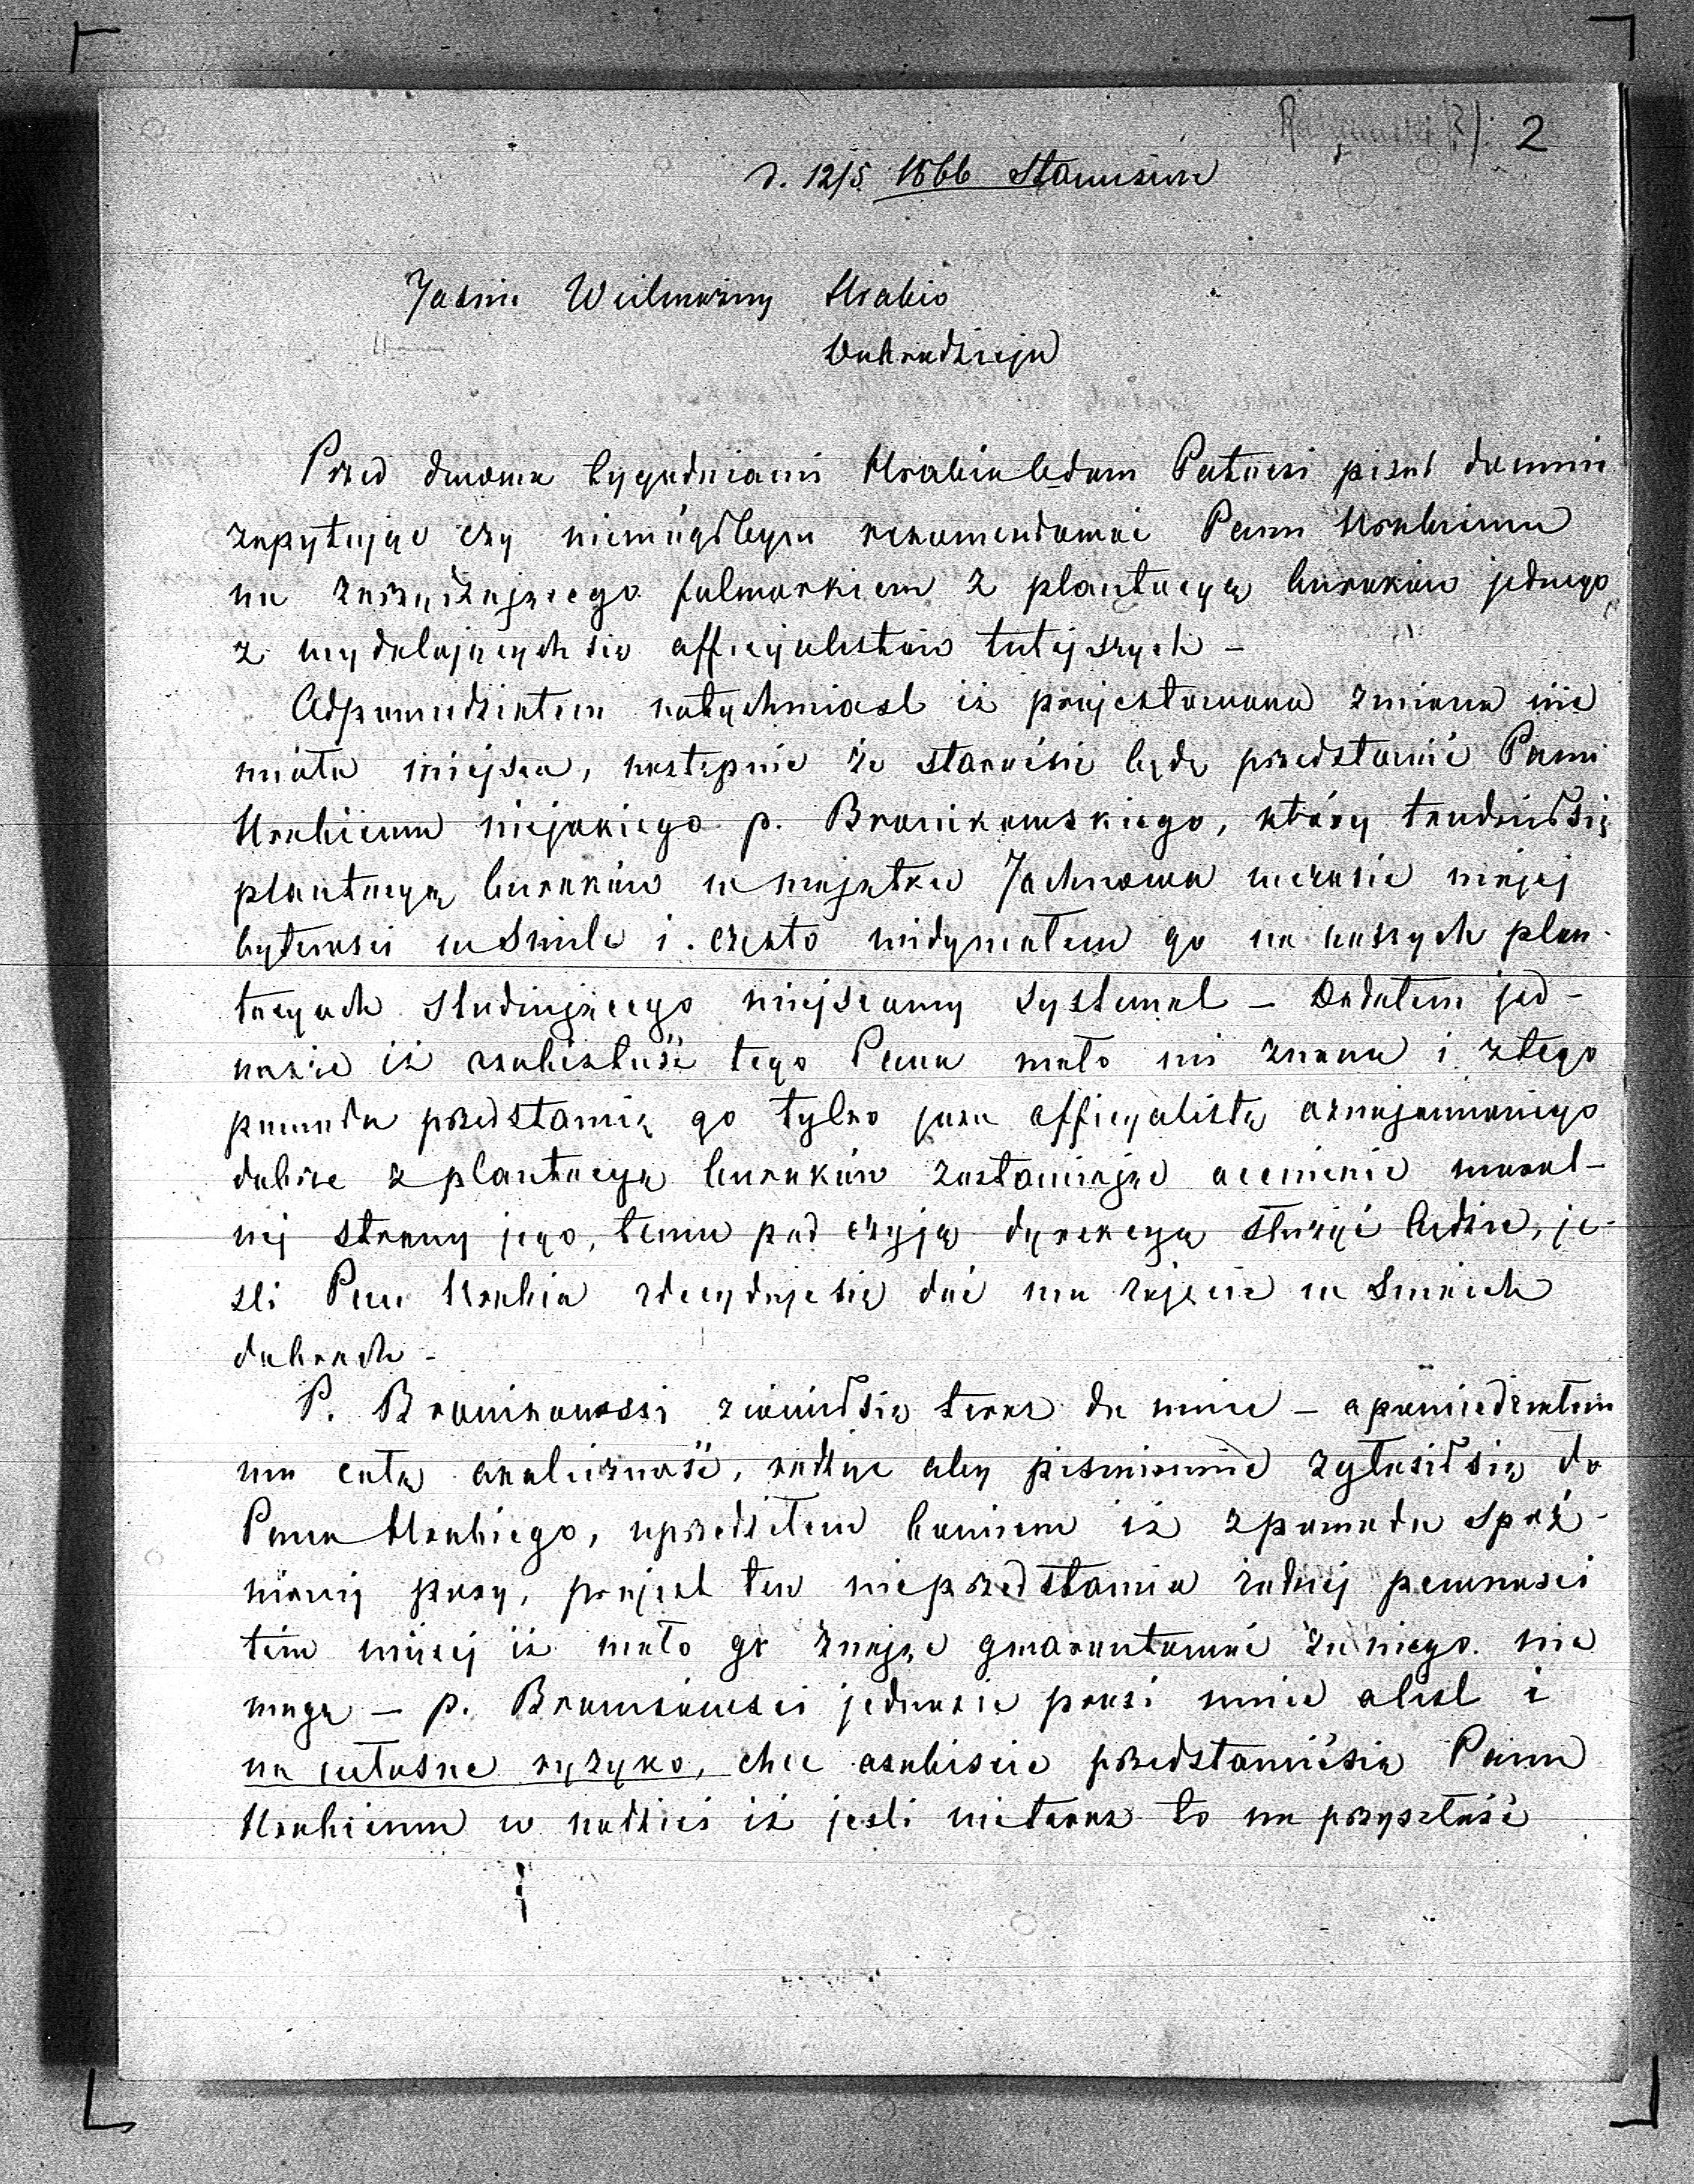 2
d. 12/5 1866 Stanisław
Jaśnie Wielmożny Hrabio
Dobrodzieju
Przed dwoma tygodniami Hrabia Adam Potocki pisał do mnie
zapytując czy niemógłbym rekomendować Panu Hrabiemu
na zarządzającego folwarkiem z plantacyą buraków jednego
z wydalających się officyalistów tutejszych –
Odpowiedziałem natychmiast iż projektowana zmiana nie
miała miejsca, następnie że staraćsie będę przedstawić Panu
Hrabiemu niejakiego p. Bronikowskiego, który trudniłsię
plantacyą buraków w majątku Jachnowa wczasie mojej
bytności w Smile i często widywałem go na naszych plan-
tacyach studiującego miejscowy systemat – Dodałem jed-
nakże iż osobistość tego Pana mało mi znana i ztego
powodu przedstawię go tylko jako officyalistę oznajomionego
dobrze z plantacyą buraków zostawiając ocenienie moral-
nej strony jego, temu pod czyją dyrekcyą służyć będzie, je-
śli Pan Hrabia zdecydujesię dać mu zajęcie w Swoich
dobrach –
P. Bronikowski zjawiłsię teraz do mnie – opowiedziałem
mu całą okoliczność, radząc aby piśmiennie zgłosiłsię do
Pana Hrabiego, uprzedziłem bowiem iż zpowodu spóź-
nionej pory, projekt ten nieprzedstawia żadnej pewności
tém więcej iż mało go znając gwarantować za niego nie
mogę – p. Bronikowski jednakże prosi mnie olist i
na własne ryzyko, chce osobiście przedstawićsię Panu
Hrabiemu w nadziei iż jeśli nieteraz to na przyszłość